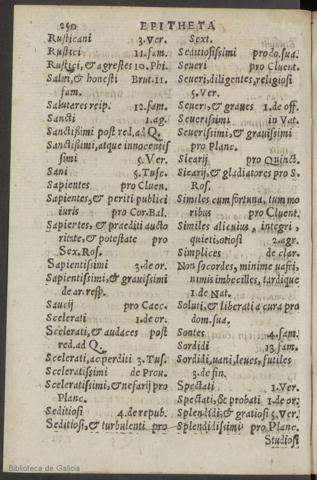 250 EPITHETA
Rusticani 3.Ver.
Rustici 11.fam.
Rustici,& agrestes 10.Phi.
Salui,& honesti Brut.11.
fam.
Salutares reip. 12.fam.
Sancti 1.ag.
Sanctissimi post red.ad Q.
Sanctissimi,atque innocentis
simi 5.Ver.
Sani 5.Tusc.
Sapientes pro Cluen.
Sapientes,& periti publici
iuris pro Cor.Bal.
Sapientes,& praediti aucto
ritate,& potestate pro
Sex.Ros.
Sapientissimi 3.de or.
Sapientissimi,& grauissimi
de ar.resp.
Saucij pro Caec.
Scelerati 1.de or.
Scelerati,& audaces post
red.ad Q.
Scelerati,ac perditi 3.Tus.
Sceleratissimi de Prou.
Sceleratissimi,& nefarij pro
Planc.
Seditiosi 4.de repub.
Seditiosi,& turbulenti pro
Sext.
Seditiosissimi pro do.sua.
Seueri pro Cluent.
Seueri,diligentes,religiosi
5.Ver.
Seueri,& graues 1.de off.
Seuerissimi in Vat.
Seuerissimi,& grauissimi
pro Planc.
Sicarij pro Quinct.
Sicarij,& gladiatores pro S.
Ros.
Similes cum fortuna, tum mo
ribus pro Cluent.
Similes alicuius , integri ,
quieti,otiosi 2.agr.
Simplices de clar.
Non socordes,minime uafri,
nimis imbecilles, tardique
1.de Nat.
Soluti,& liberati a cura pro
dom.sua.
Sontes 4.fam.
Sordidi 13.fam.
Sordidi,uani,leues,futiles
3.de fin.
Spectati 1.Ver.
Spectati,& probati 1.de or.
Splendidi,& gratiosi 5.Ver.
Splendidissimi pro Planc.
Studiosi
Biblioteca de Galicia